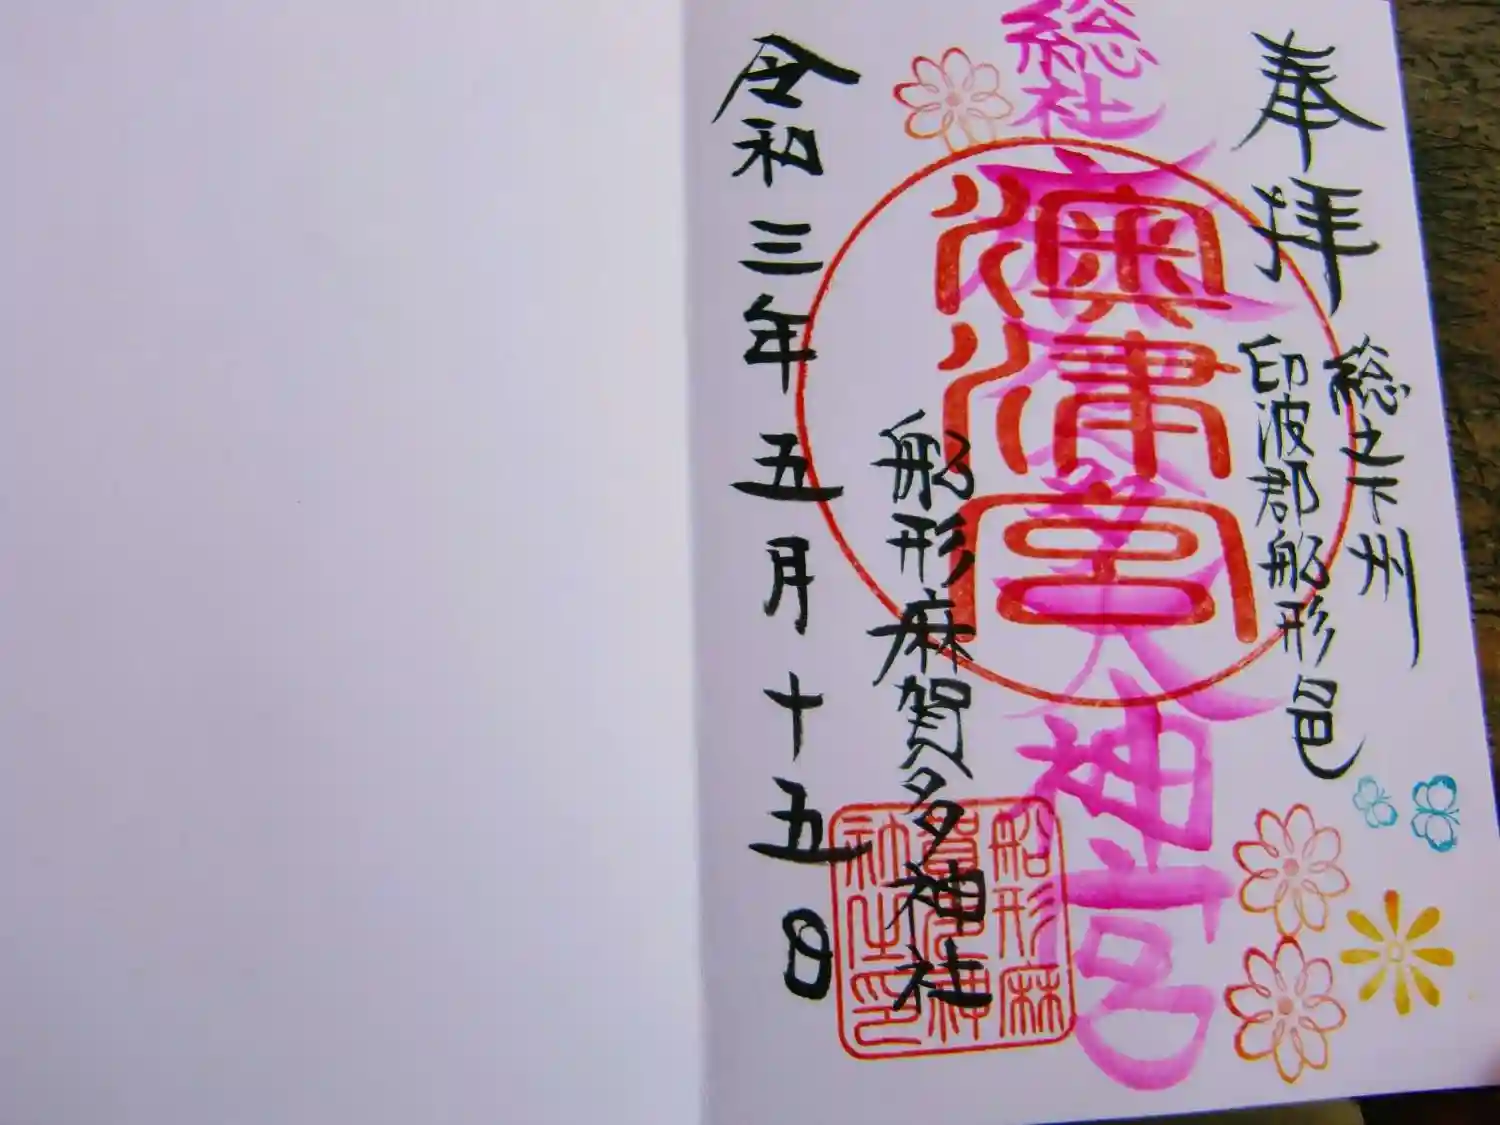 奉拝
総之下州
印波郡船形邑
総社
麻賀多大神宮
澳津宮
船形麻賀多神社
船形麻
賀多神
社之印
令和三年五月十五日